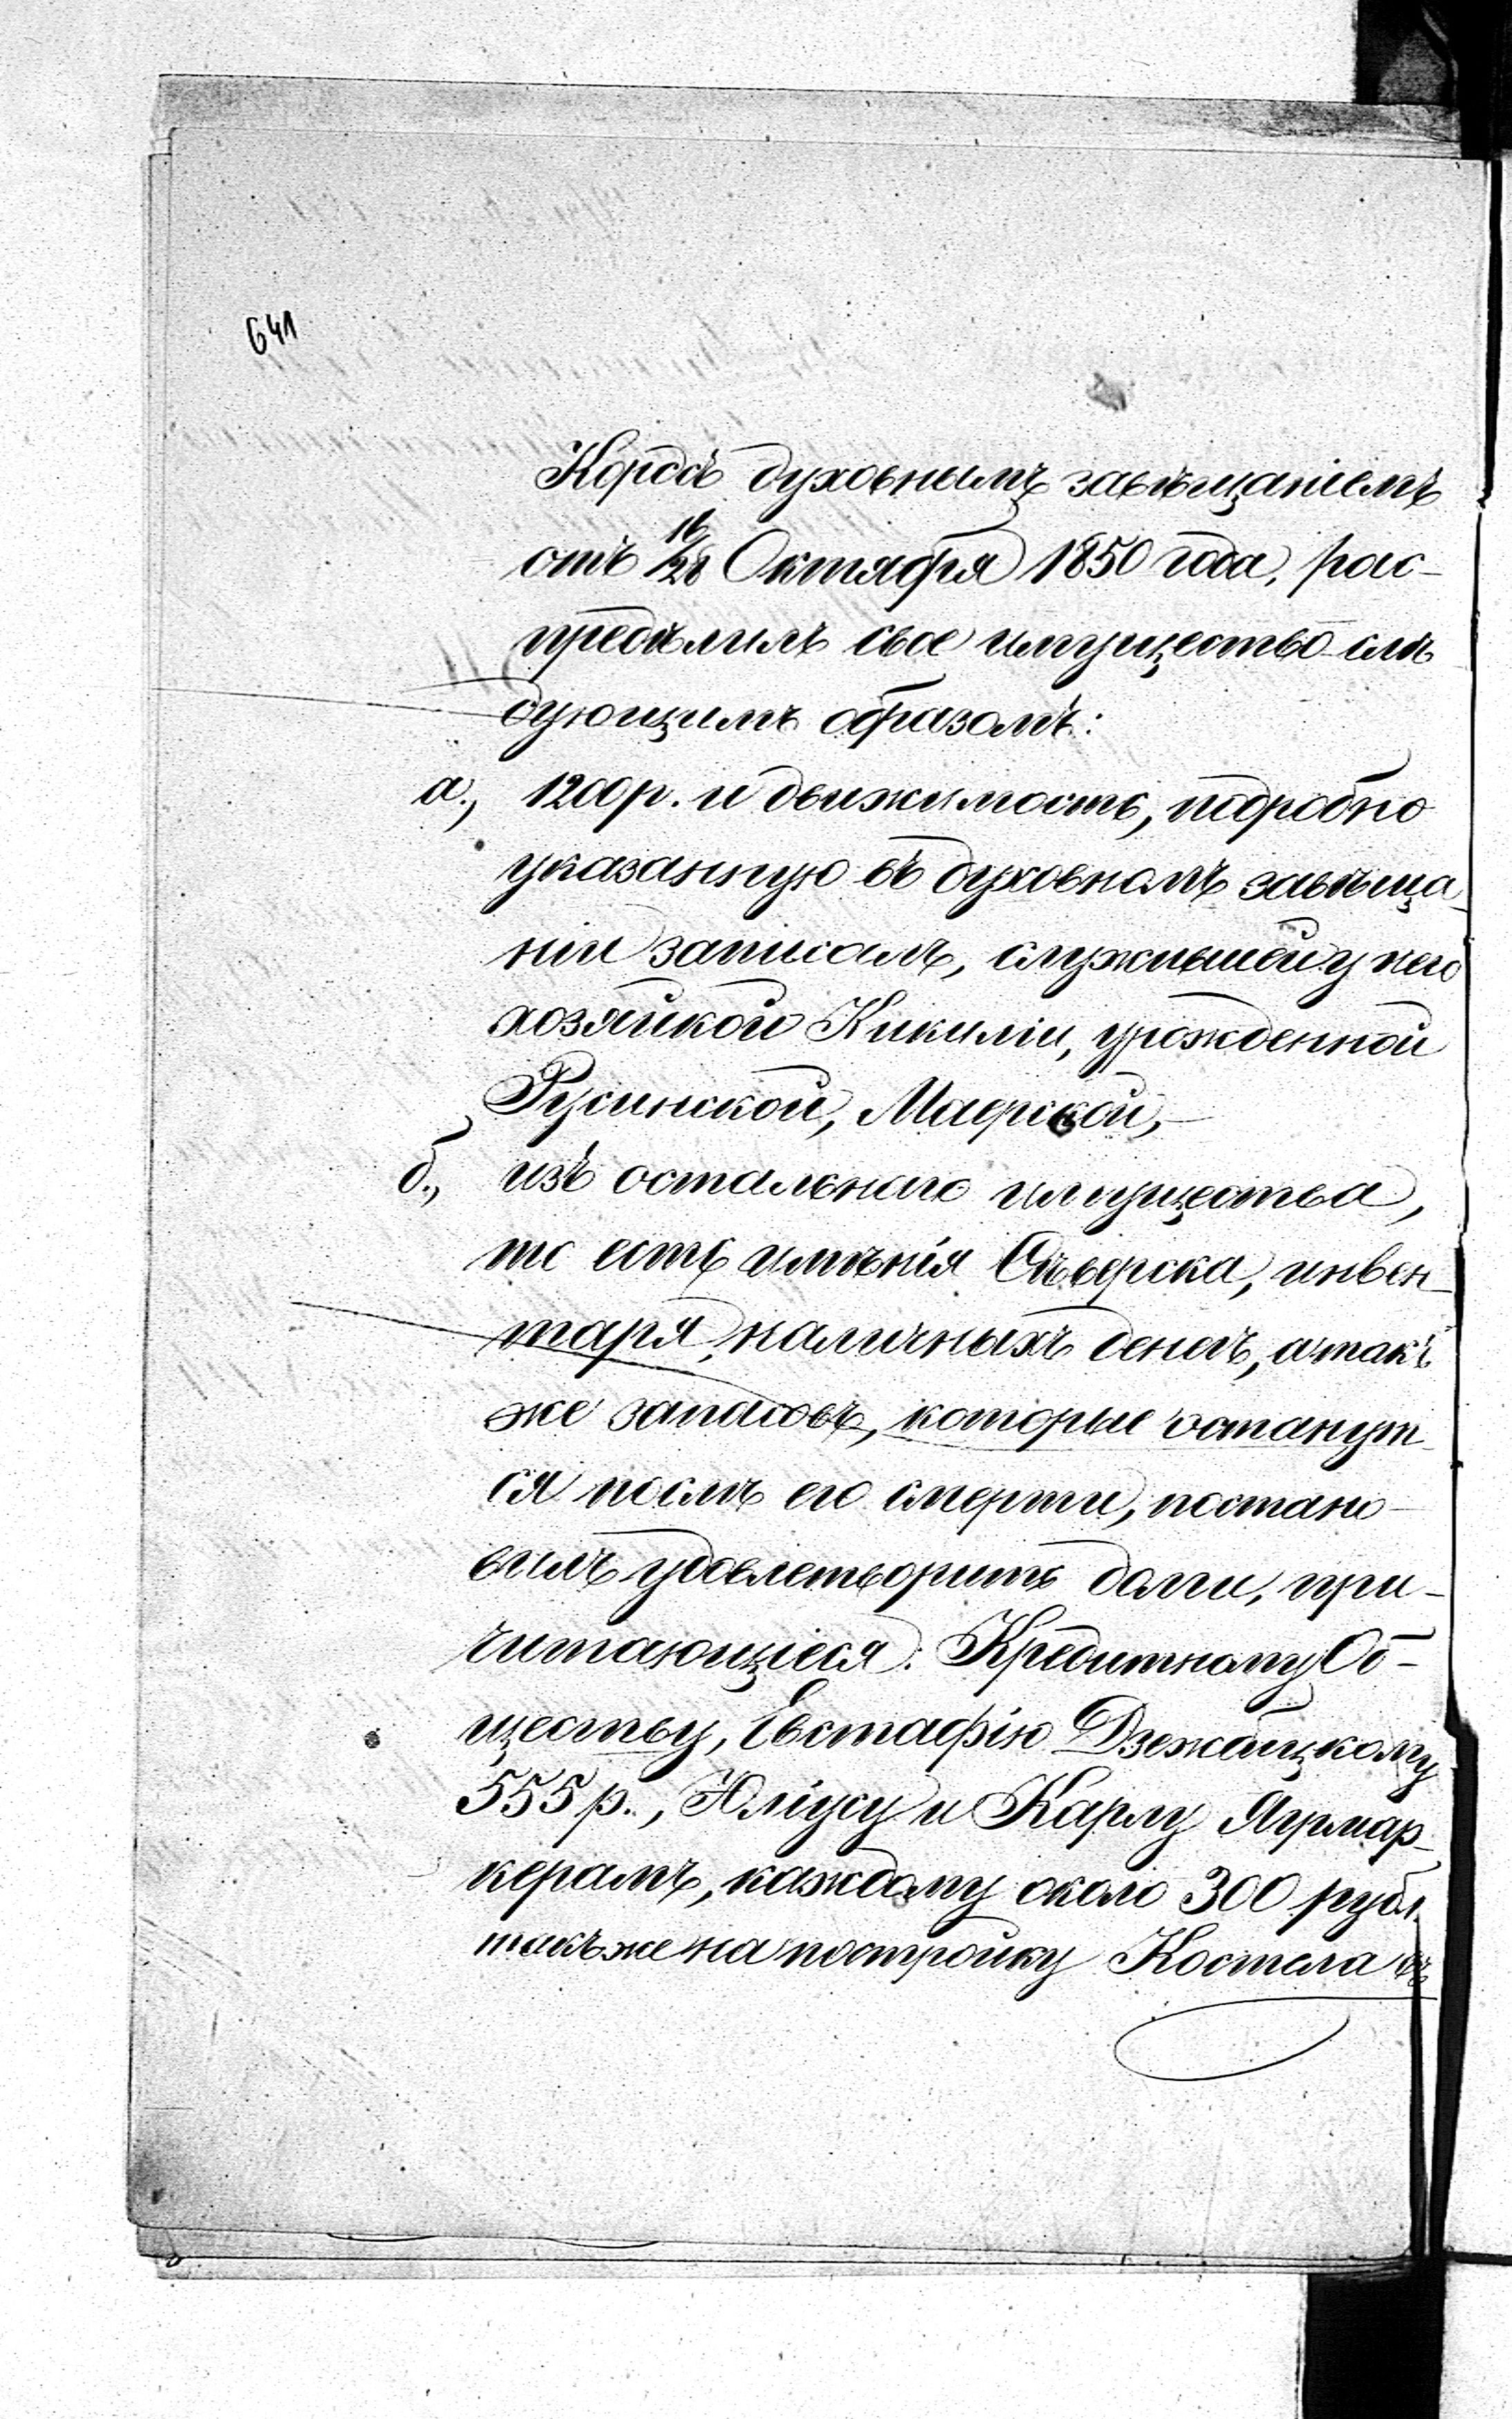 641
Кордъ духовнымъ завѣщаніемъ
отъ 16/28 Октября 1850 года, рас-
предѣлилъ свое имущество слѣ
дующимъ образомъ:
а., 1200 р. и движимость, подробно
указанную въ духовномъ завѣща_
ніи записалъ, служившей у него
хозяйкой Кикиліи, урожденной
Русинской, Маерской,-
б., изъ остальнаго имущества,
то есть имѣнія Сѣверска, инвен_
таря, наличныхъ денегъ, а такъ
же запасовъ, которые останут_
ся послѣ его смерти, постано-
вилъ удовлетворить долги, при-
читающіеся: Кредитному Об-
ществу, Евстафію Дзежбицкому
555 р., Юліусу и Карлу Ягрмар_
керамъ, каждому около 300 рубл.
такъ же на постройку Костела въ